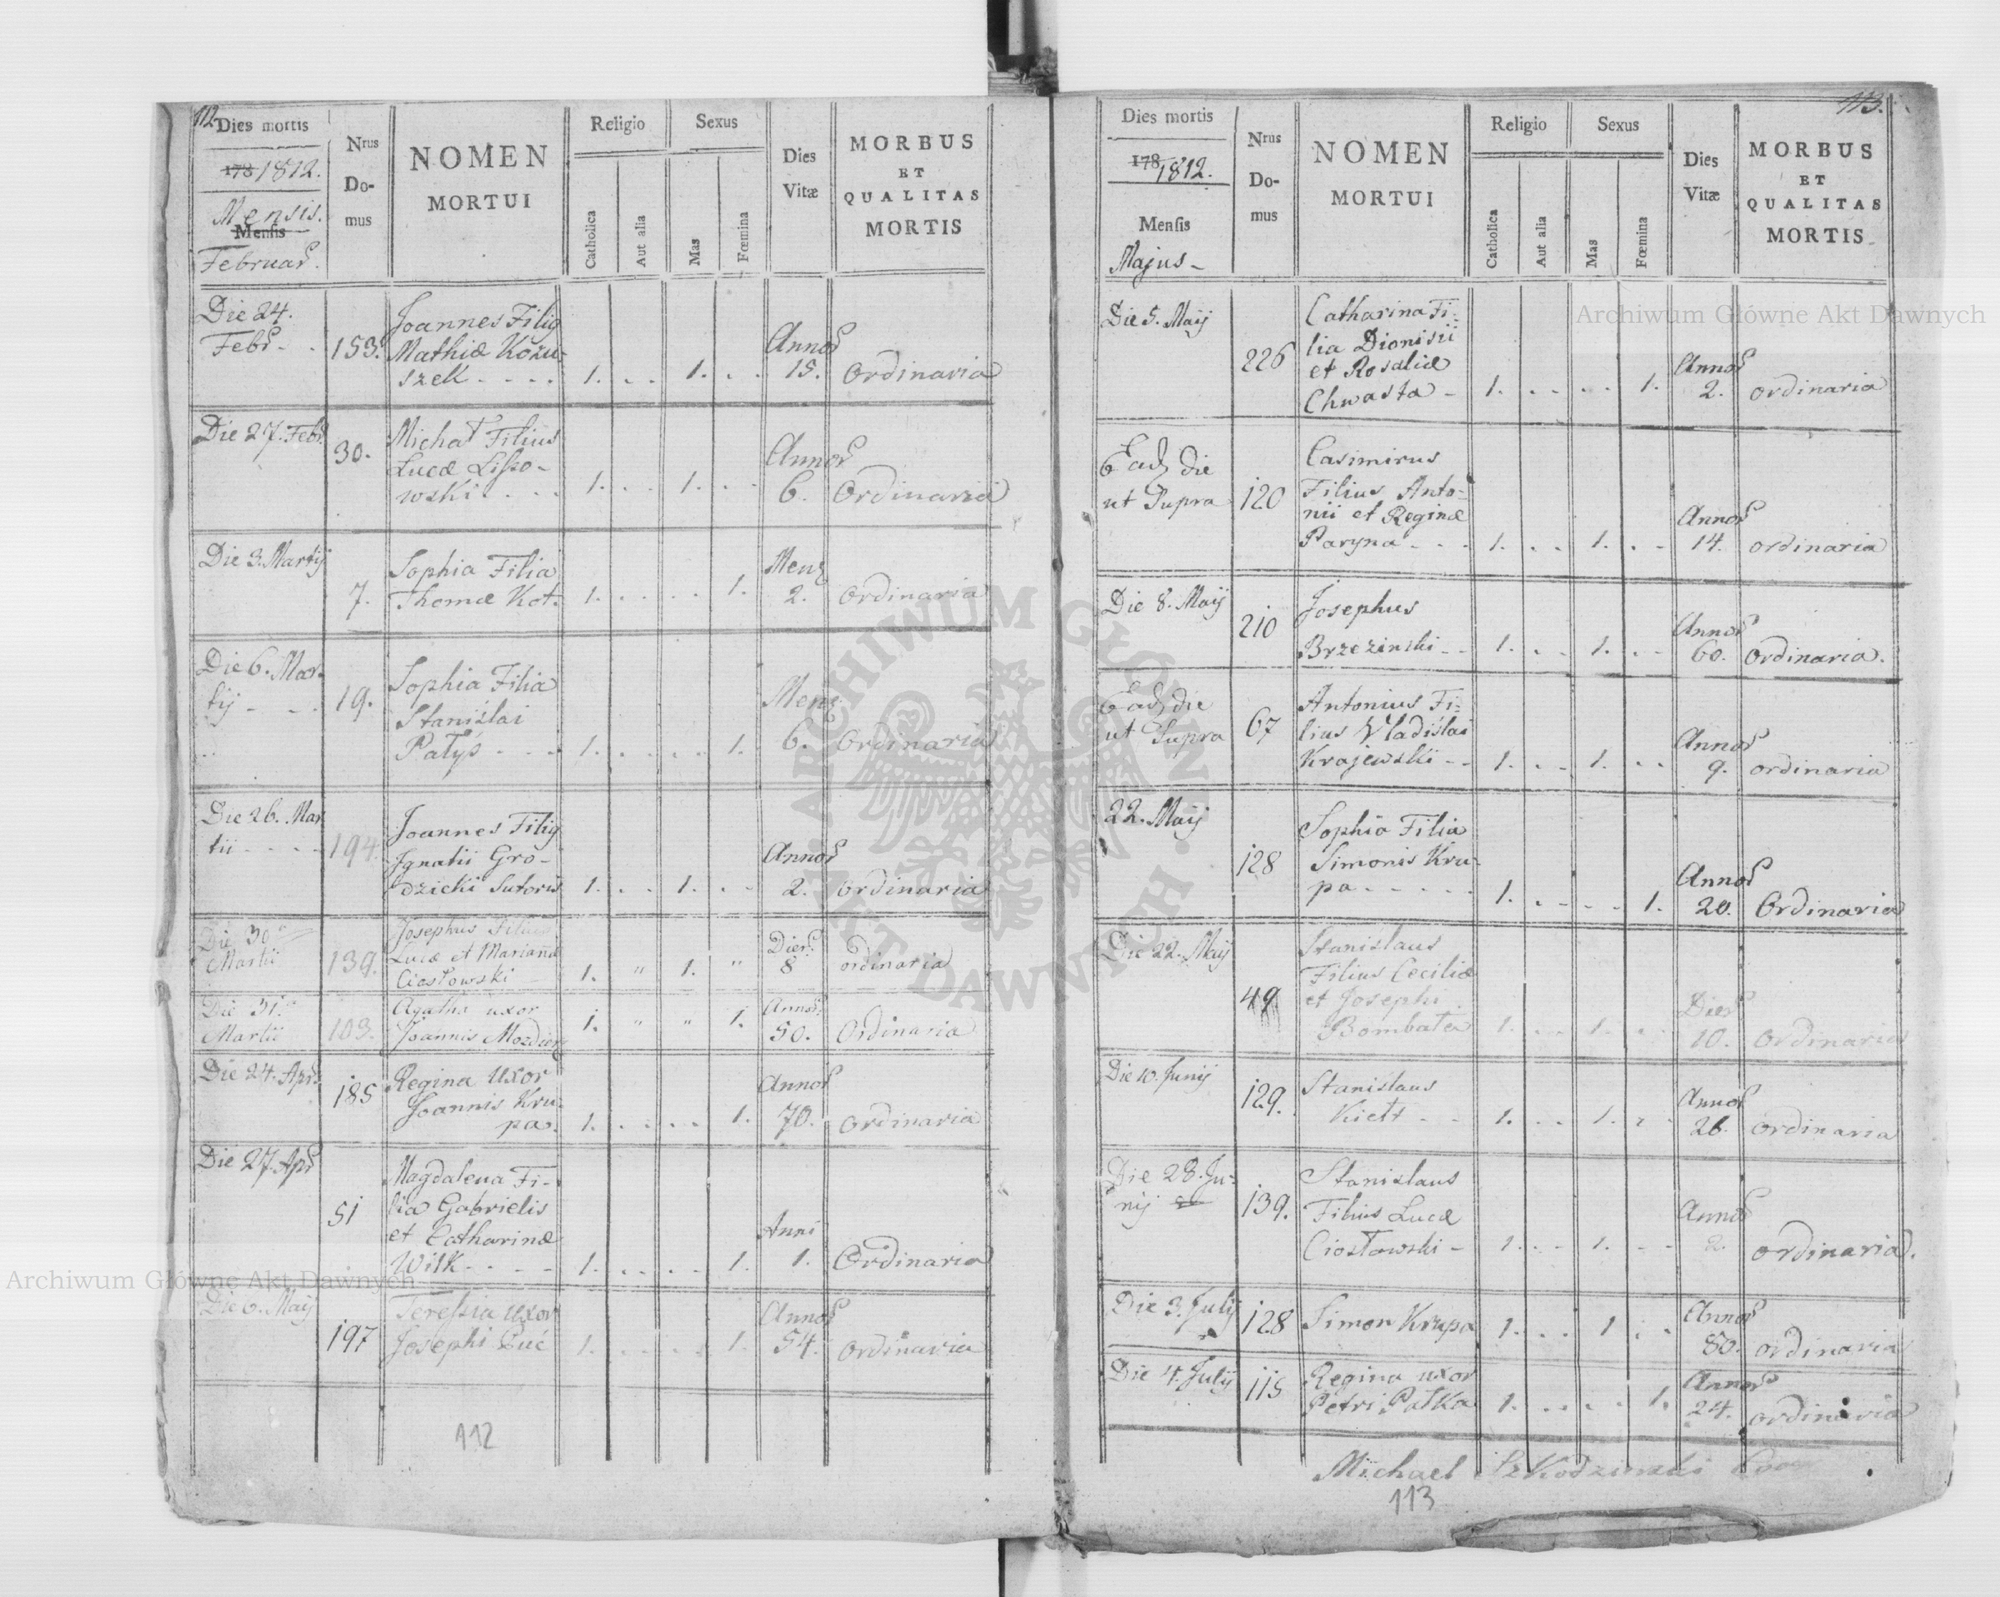 112.
Dies mortis
178 1812.
Mensis.
Mensis
Februar.
Nrus
Do-
mus
NOMEN
MORTUI
Religio
Catholica
Aut alia
Sexus
Mas
Fœmina
Dies
Vitæ
MORBUS
ET
QUALITAS
MORTIS
Die 24.
Febr - .
153.
Joannes Filig
Mathiæ Kożu-
szek - - - .
1. . . 1. . .
Annor
15.
Ordinaria
Die 27. Febr
30.
Michał Filius
Lucæ Lisso-
wski . - - .
1. . . 1. . .
Annor
6.
Ordinaria
Die 3. Martij
7.
Sophia Filia
Thomæ Kot.
1. . . . . 1.
Mens
2.
Ordinaria
Die 6. Mar-
tij - . - .
19.
Sophia Filia
Stanislai
Patys - - .
1. . . . . 1.
Mens
6.
Ordinaria
Die 26. Mar
tii - - - .
194.
Joannes Filig
Ignatii Gro-
dzicki Sutoris
1. . . 1. . .
Annor
2.
Ordinaria
Die 30a
Martii
139.
Josephus Filius
Lucæ et Mariannæ
Ciosłowski
1. " 1. "
Dier.
8
ordinaria
Die 31a
Martii
103.
Agatha uxor
Joannis Mozdierz
1. " " 1.
Annor.
50.
Ordinaria
Die 24. Apr.
185
Regina Uxor
Joannis Kru-
pa.
1. . . . . 1.
Annor
70.
Ordinaria
Die 27. Apr
51
Magdalena Fi-
lia Gabrielis
et Catharinæ
Wilk - - - -
1. . . . . 1.
Anni
1.
Ordinaria
Die 6. Maij
197
Teressia Uxor
Josephi
1. . . . . 1.
Annor
54.
Ordinaria
112
113.
Dies mortis
178 1812.
Mensis
Majus -
Nrus
Do-
mus
NOMEN
MORTUI
Religio
Catholica
Aut alia
Sexus
Mas
Fœmina
Dies
Vitæ
MORBUS
ET
QUALITAS
MORTIS
Die 5. Maij
226
Catharina Fi-
lia Dionisii
et Rosaliæ
Chwasta -
1. . . . . 1.
Annor
2.
ordinaria
Ead die
ut Supra
120
Casimirus
Filius Anto-
nii et Reginæ
Paryna - - .
1. . . 1. . .
Annor
14.
ordinaria
Die 8. Maij
210
Josephus
Brzezinski - -
1. . . 1. . .
Annor
60.
Ordinaria.
Ead die
ut Supra
67
Antonius Fi-
lius Vladislai
Krajewski - -
1. . . 1. . .
Annor
9.
ordinaria
22. Maij
128
Sophia Filia
Simonis Kru-
pa - - - - .
1. . . . . 1.
Annor
20.
Ordinaria
Die 22. Maij
49
Stanislaus
Filius Ceciliæ
et Josephi
Bombała
1. . . 1. . .
Dier
10.
Ordinaria
Die 10. Junij
129.
Stanislaus
- -
1. . . 1. . .
Annor
26.
Ordinaria
Die 28. Ju-
nij
139.
Stanislaus
Filius Lucæ
Ciosłowski -
1. . . 1. . .
Annor
2.
Ordinaria.
Die 3. Julij
128
Simon Krupa
1. . . 1 . .
Annor
80.
ordinaria
Die 4. Julij
115
Regina uxor
Petri Pałka
1. . . . . 1.
Annor
24.
ordinaria
Michael Szkodzinski
113
Archiwum Główne Akt Dawnych
Archiwum Główne Akt Dawnych
ARCHIWUM GŁÓWNE
AKT DAWNYCH